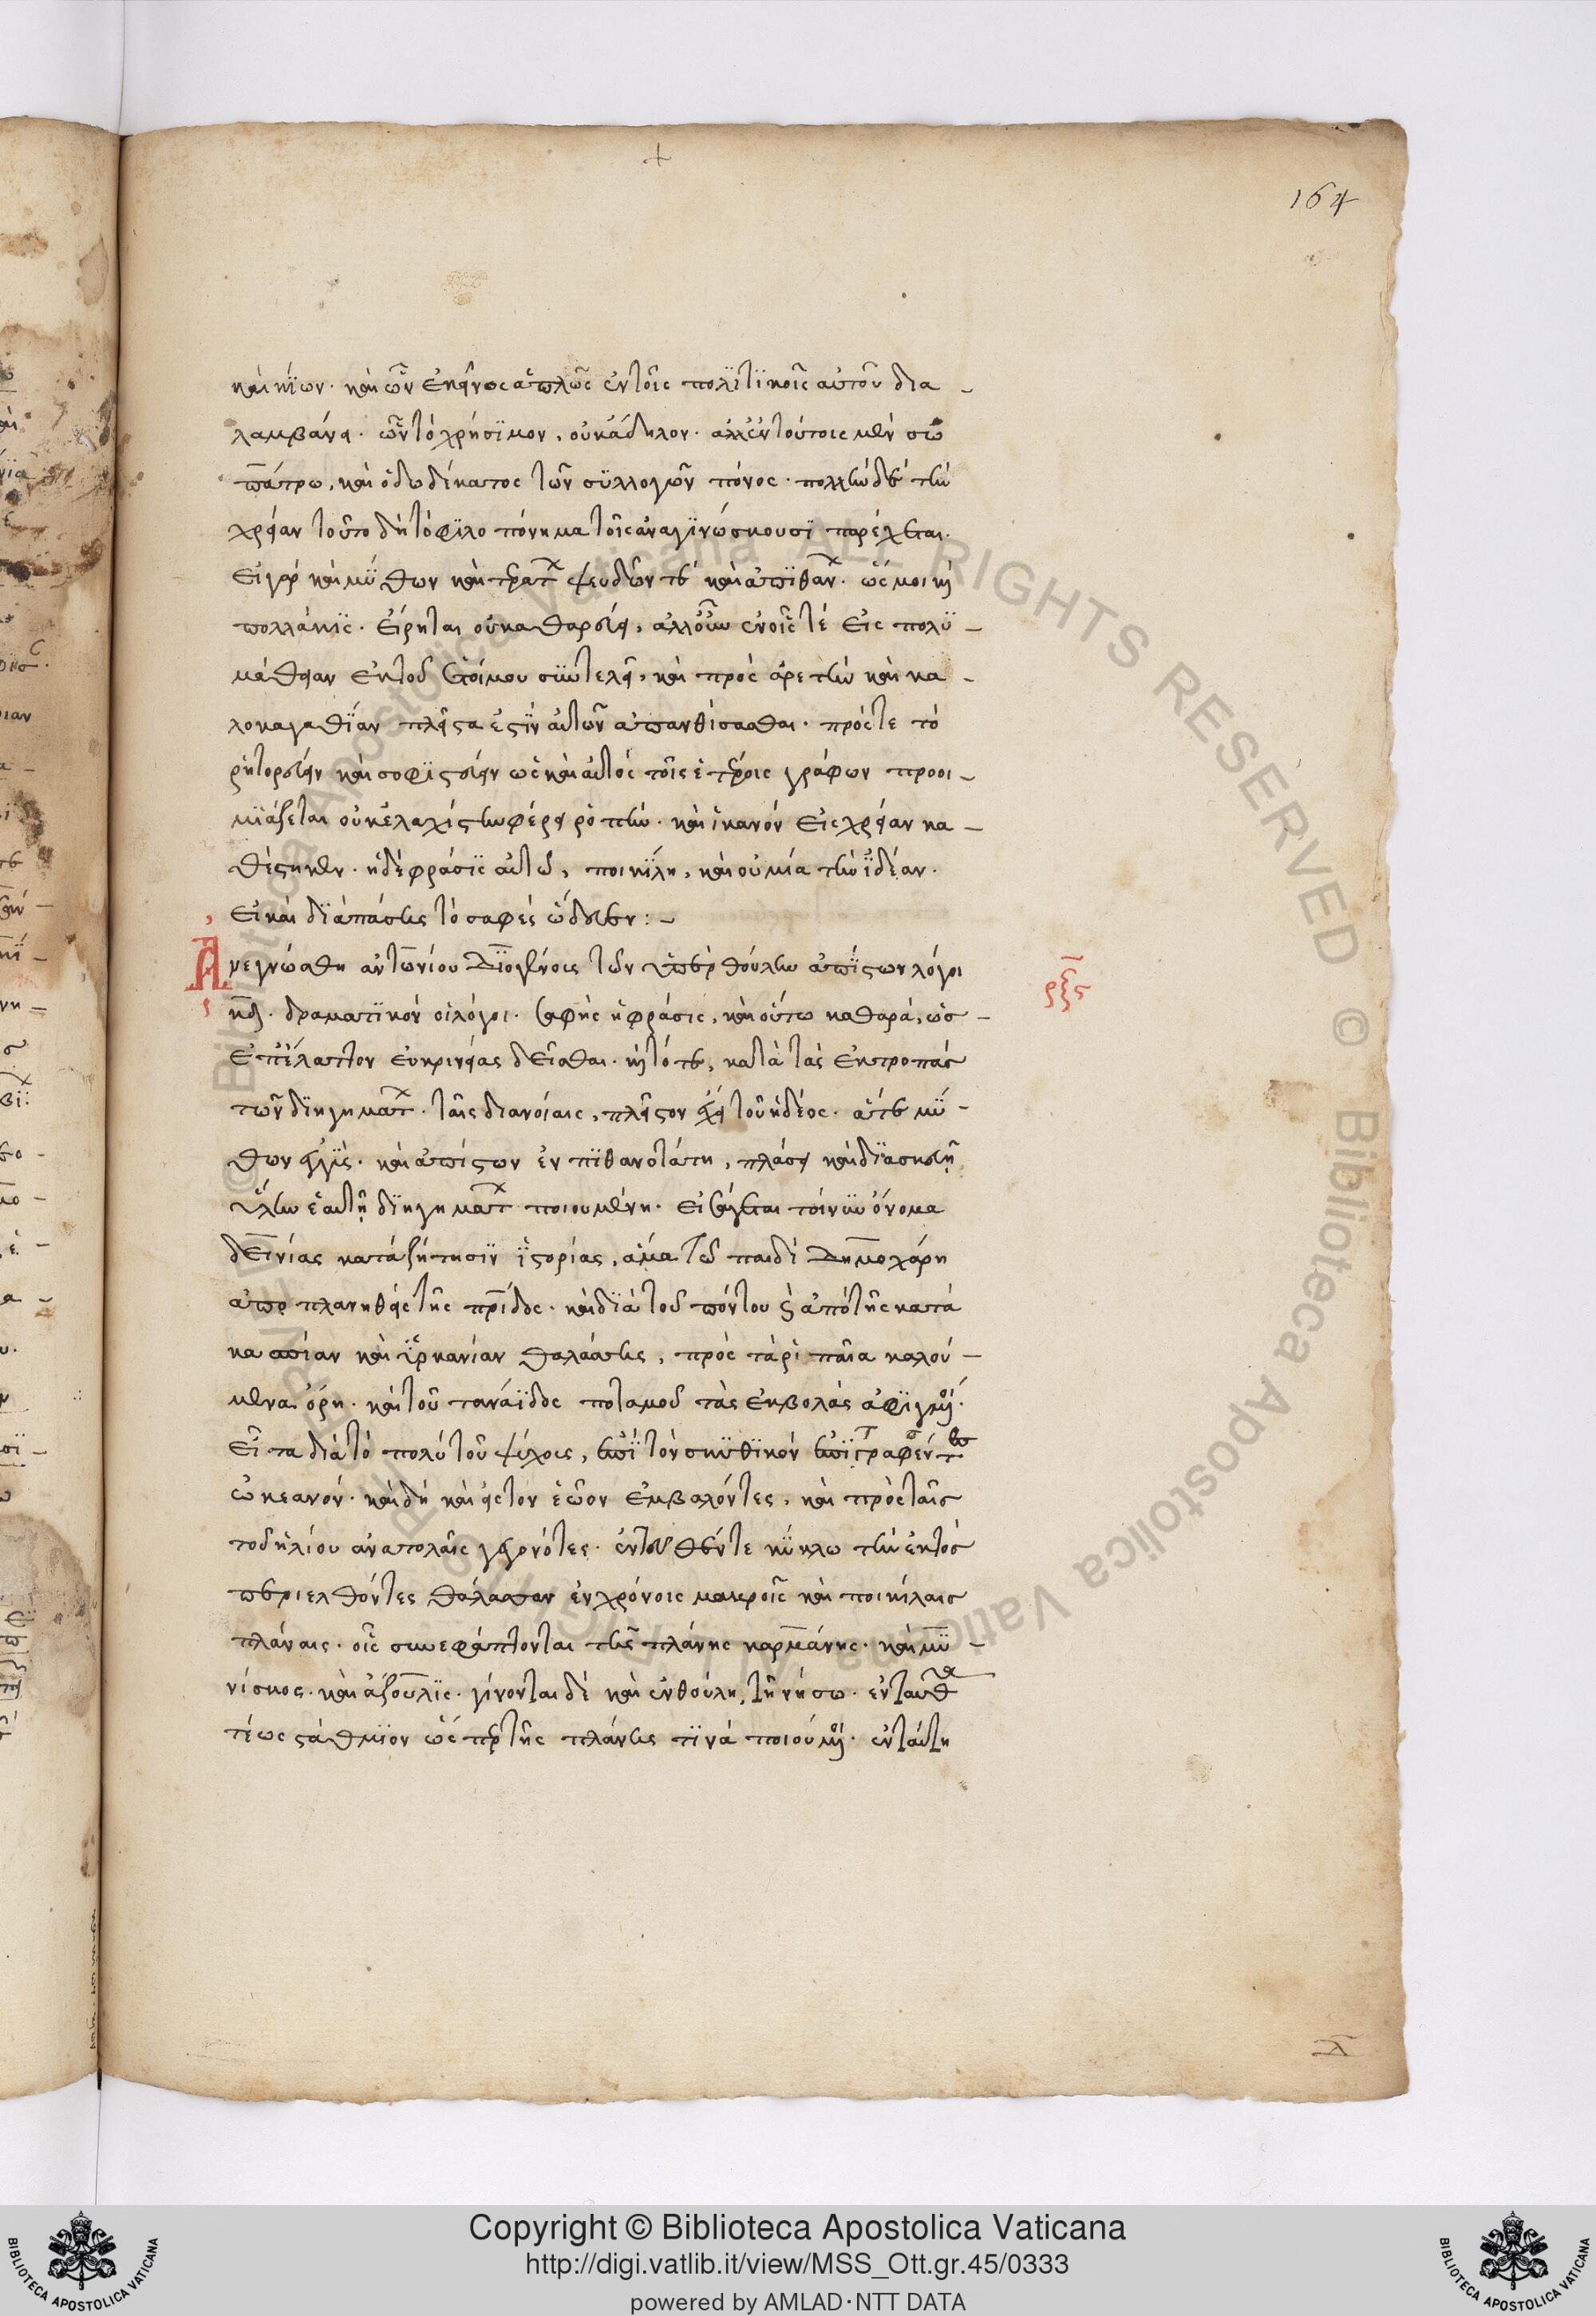 164
καὶ κίων. καὶ ὧν ἐκεῖνος ἁπλῶς ἐν τοῖς πολιτικοῖς αὐτοῦ δια-
λαμβάνει. ὧν τὸ χρήσιμον, οὐκ ἄδηλον. ἀλλ' ἐν τούτοις μὲν σω
πάτρω, καὶ ὁ δωδέκατος τῶν συλλογῶν τόνος. πολλὴν δὲ τὴν
χρείαν τοῦτο δὴ τὸ φιλοπόνημα τοῖς ἀναγινώσκουσι παρέχεται.
εἰ γὰρ καὶ μύθων καὶ τερατ ψευδῶν τε καὶ ἀπιθαν. ὥς μοι κ
πολλάκις. εἴρηται οὐ καθαρεύει, ἀλλ' οὖν ἐν οἷς τέ εἰς πολυ-
μάθειαν ἐκ τοῦ ἑτοίμου συντελεῖ, καὶ πρὸς ἀρετὴν καὶ κα-
λοκαγαθίαν πλεῖστα ἐστὶν αὐτῶν ἀπανθίσασθαι. πρός τε τὸ
ῥητορεύειν καὶ σοφιστεύειν ὡς καὶ αὐτὸς τοῖς ἑτέροις γράφων προοι-
μιάζεται οὐκ ἐλαχίστην φέρει ῥοπὴν. καὶ ἱκανόν εἰς χρείαν κα-
θέστηκεν. ἡ δὲ φράσις αὐτῶ, ποικίλη, καὶ οὐ μία τὴν ἰδέαν.
εἰ καὶ διὰ πάσης τὸ σαφὲς ὥδευεν:-
Ἀνεγνώσθη ἀντωνίου διογένους τῶν ὑπὲρ θούλην ἀπίστων λόγοι ρξς
κδ. δραματικὸν οἱ λόγοι. σαφὴς ἡ φράσις, καὶ οὕτω καθαρά, ὡσ-
ἐπ' ἔλαττον εὐκρινείας δεῖσθαι. κ τό τε, κατὰ τὰς ἐκτροπὰς
τῶν διηγηματ. ταῖς διανοίαις, πλεῖστον ἔχει τοῦ ἡδέος. ἅτε μύ-
θων ἐγγὺς. καὶ ἀπίστων ἐν πιθανοτάτη, πλάσει καὶ διασκευῇ
ὕλην ἑαυτῇ διηγηματ ποιουμένη. εἰσάγεται τοίνυν ὄνομα
δεινίας κατὰ ζήτησιν ἱστορίας, ἅμα τῶ παιδὶ δημοχάρη
ἀποπλανηθεὶς τῆς πρίδος. καὶ διὰ τοῦ πόντου κ ἀπὸ τῆς κατὰ
κασπίαν καὶ ὑρκανίαν θαλάσσης, πρὸς τὰ ῥιπαῖα καλού-
μενα ὄρη. καὶ τοῦ τανάιδος ποταμοῦ τὰς ἐκβολὰς ἀφιγμοι.
εἶτα διὰ τὸ πολὺ τοῦ ψύχους, ἐπὶ τὸν σκυθικὸν ἐπιστραφέντες
ὠκεανόν. καὶ δὴ καὶ εἰς τον ἑῶον ἐμβαλόντες, καὶ πρὸς ταῖς
τοῦ ἡλίου ἀνατολαῖς γεγονότες. ἐντεῦθέν τε κύκλω τὴν ἐκτὸς
περιελθόντες θάλασσαν ἐν χρόνοις μακροῖς καὶ ποικίλαις
πλάναις. οἷς συνεφάπτονται τῆς πλάνης καρμάνης. καὶ μη-
νίσκος. καὶ ἀζουλις. γίνονται δὲ καὶ ἐν θούλη, τῆ νήσω. ἐνταῦθα
τέως σταθμὸν ὥσπερ τῆς πλάνης τινὰ ποιούμοι. ἐν ταύτη
Copyright © Biblioteca Apostolica Vaticana
http://digi.vatlib.it/view/MSS_Ott.gr.45/0333
powered by AMLAD·NTT DATA